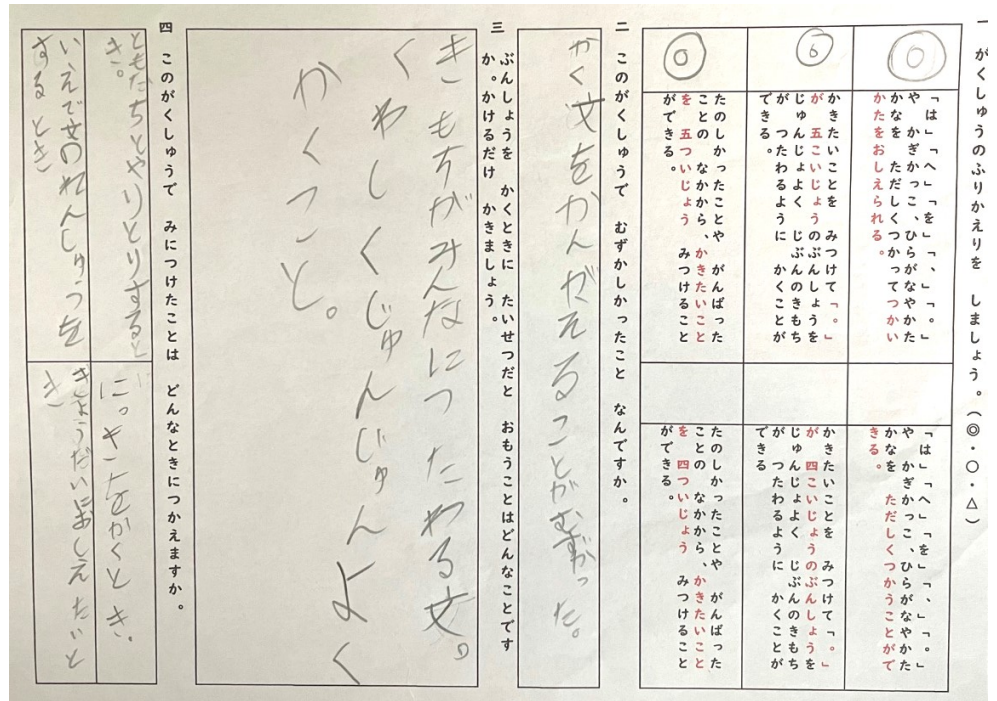 一 がくしゅうのふりかえりを しましょう。(◎・○・△)
◎
「は」「へ」「を」「、」「。」
や かぎかっこ、ひらがなやかた
かなを ただしくつかってつかい
かたをおしえられる。
「は」「へ」「を」「、」「。」
や かぎかっこ、ひらがなやかた
かなを ただしくつかうことがで
きる。
かきたいことを みつけて「。」
が 五こいじょうのぶんしょうを
じゅんじょよく じぶんのきもち
が つたわるように かくことが
できる。
かきたいことを みつけて「。」
が 四こいじょうのぶんしょうを
じゅんじょよく じぶんのきもち
が つたわるように かくことが
できる
◎
たのしかったことや がんばった
ことの なかから、かきたいこと
を 五ついじょう みつけること
ができる。
たのしかったことや がんばった
ことの なかから、かきたいこと
を 四ついじょう みつけること
ができる。
二 このがくしゅうで むずかしかったこと なんですか。
かく文をかんがえることがむずかった。
三 ぶんしょうを かくときに たいせつだと おもうことはどんなことです
か。かけるだけ かきましょう。
きもちがみんなにつたわる文。
くわしくじゅんじゅんよく
かくこと。
四 このがくしゅうで みにつけたことは どんなときにつかえますか。
ともだちとやりとりすると
き。
にっきをかくとき。
いえで文のれんしゅうを
するとき
きょうだいにおしえたいと
き